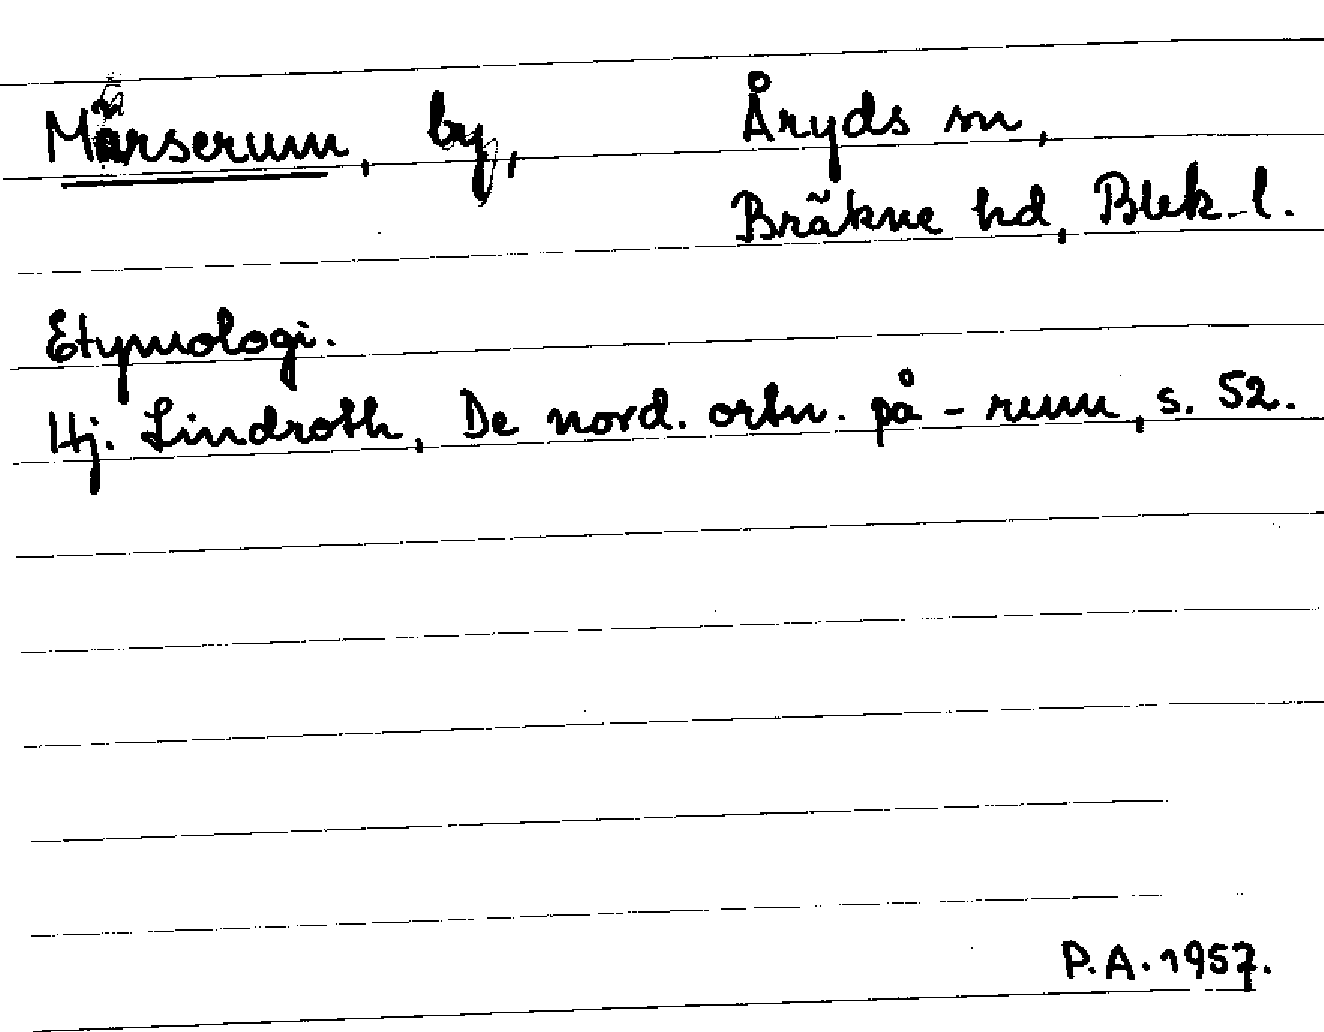 Märserum, by, Åryds sn,
Bräkne hd, Blek. l.
Etymologi.
Hj. Lindroth, De nord. ortn. på -rum, s. 52.
P.A. 1957.